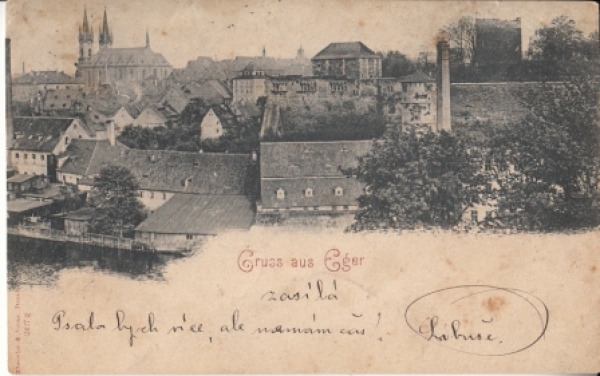 Gruss aus Eger
zasílá
Psala bych více, ale nemám čas!
Libuše.